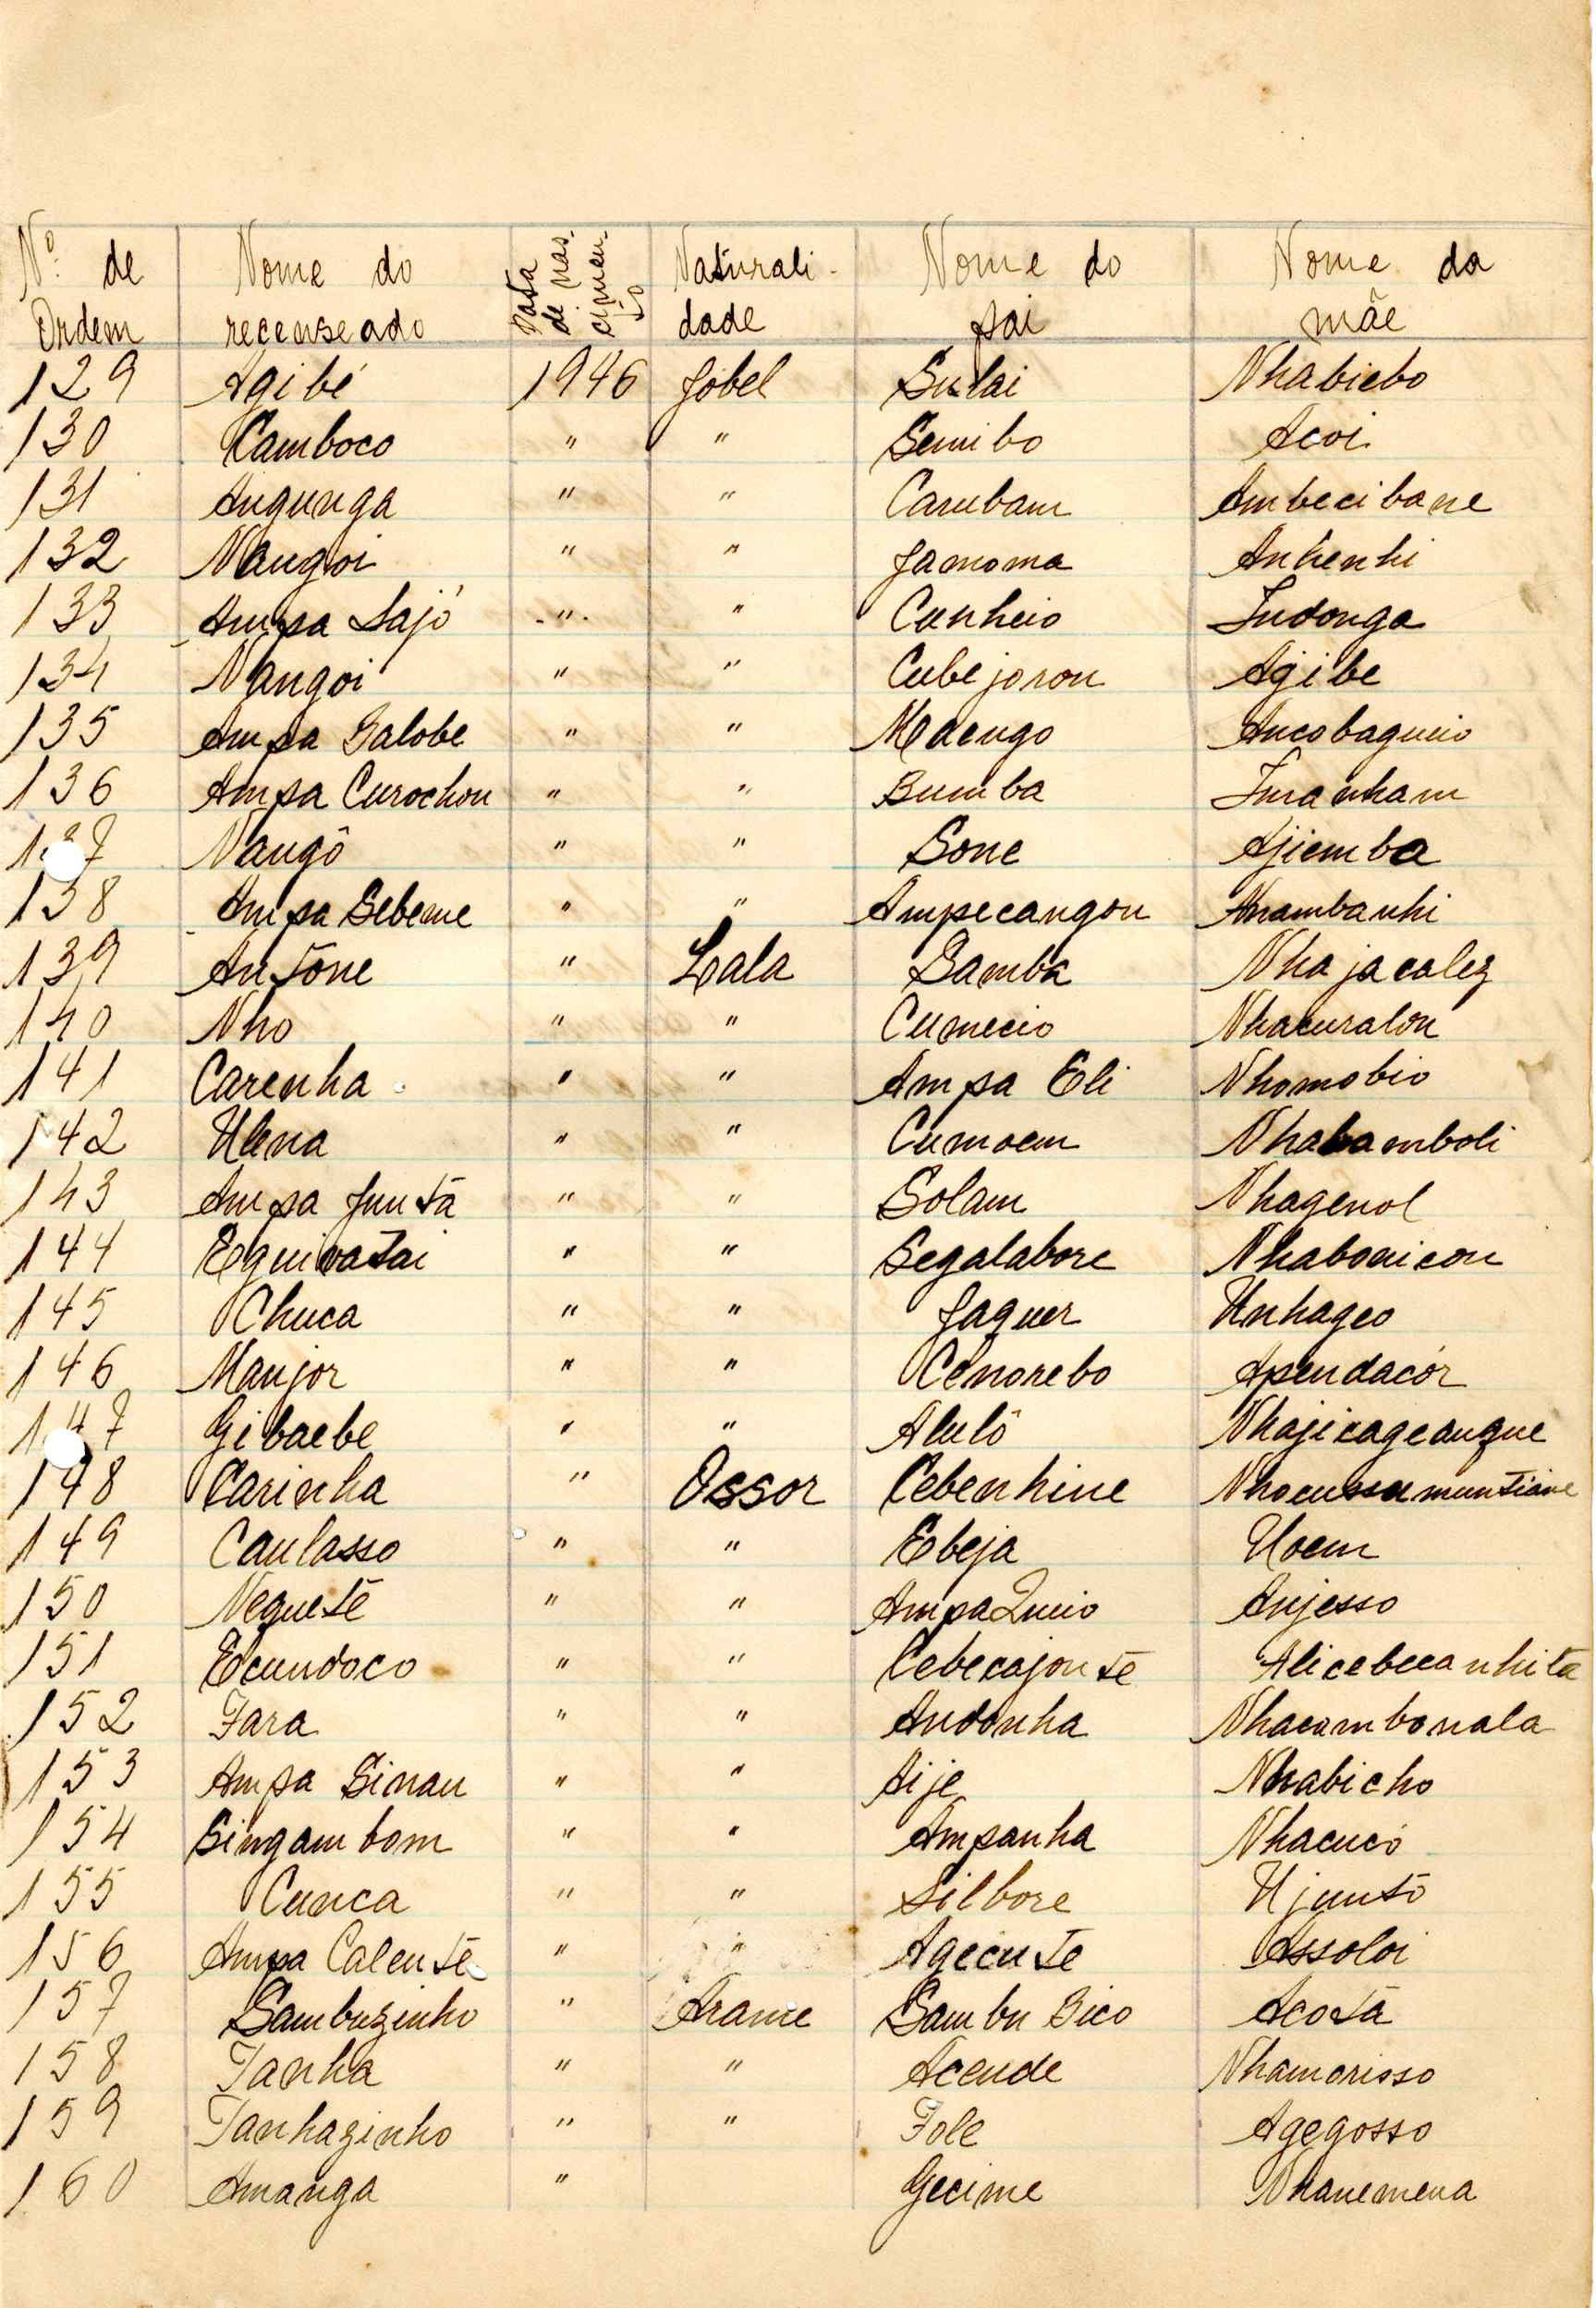 Nº de Ordem | Nome do recenseado | Data de nascimento | Naturalidade | Nome do pai | Nome da mãe
129 Agibé 1946 Jobel Sulai Nhabiebo
130 Camboco " " Semibo Acoi
131 Angunga " " Carubam Ambecibane
132 Nangoi " " Jamoma Anhenhi
133 Ampa Sajó " " Cunheio Indonga
134 Nangoi " " Cubejoron Agibe
135 Ampa Galobe " " Maengo Ancobagueio
136 Ampa Curochon " " Bumba Imanham
137 Nangô " " Sone Ajiemba
138 Ampa Sebeme " " Ampecangon Anambanhi
139 Antóne " Lala Samba Nhajacalez
140 Nho " " Cumecio Nhacuralon
141 Carenha " " Ampa Eli Nhomobio
142 Ulena " " Cumoem Nhabamboli
143 Ampa Juntã " " Solam Nhagenol
144 Equivatai " " Segalabore Nhabonicon
145 Chuca " " Jaguer Unhageo
146 Manjor " " Cenorebo Apendacór
147 Gibaebe " " Alulô Nhajicageangue
148 Carinha " Ossor Cebenhine
149 Caulasso " " Ebeja Uoem
150 Neguetê " " Ampa Queio Anjesso
151 Ecundoco " " Cebecajontê Alicebecanhita
152 Fara " " Andonha Nhacambonala
153 Ampa Sinau " " Aije Nhabicho
154 Singambom " " Ampanha Nhacuco
155 Cunca " " Silbore Ujuntó
156 Ampa Calentê " " Agecute Assoloi
157 Sambuzinho " Arame Sambu Sico Acotã
158 Tanha " " Acende Nhamorisso
159 Tanhazinho " " Fole Agegosso
160 Amanga " Gecime Nhanemena